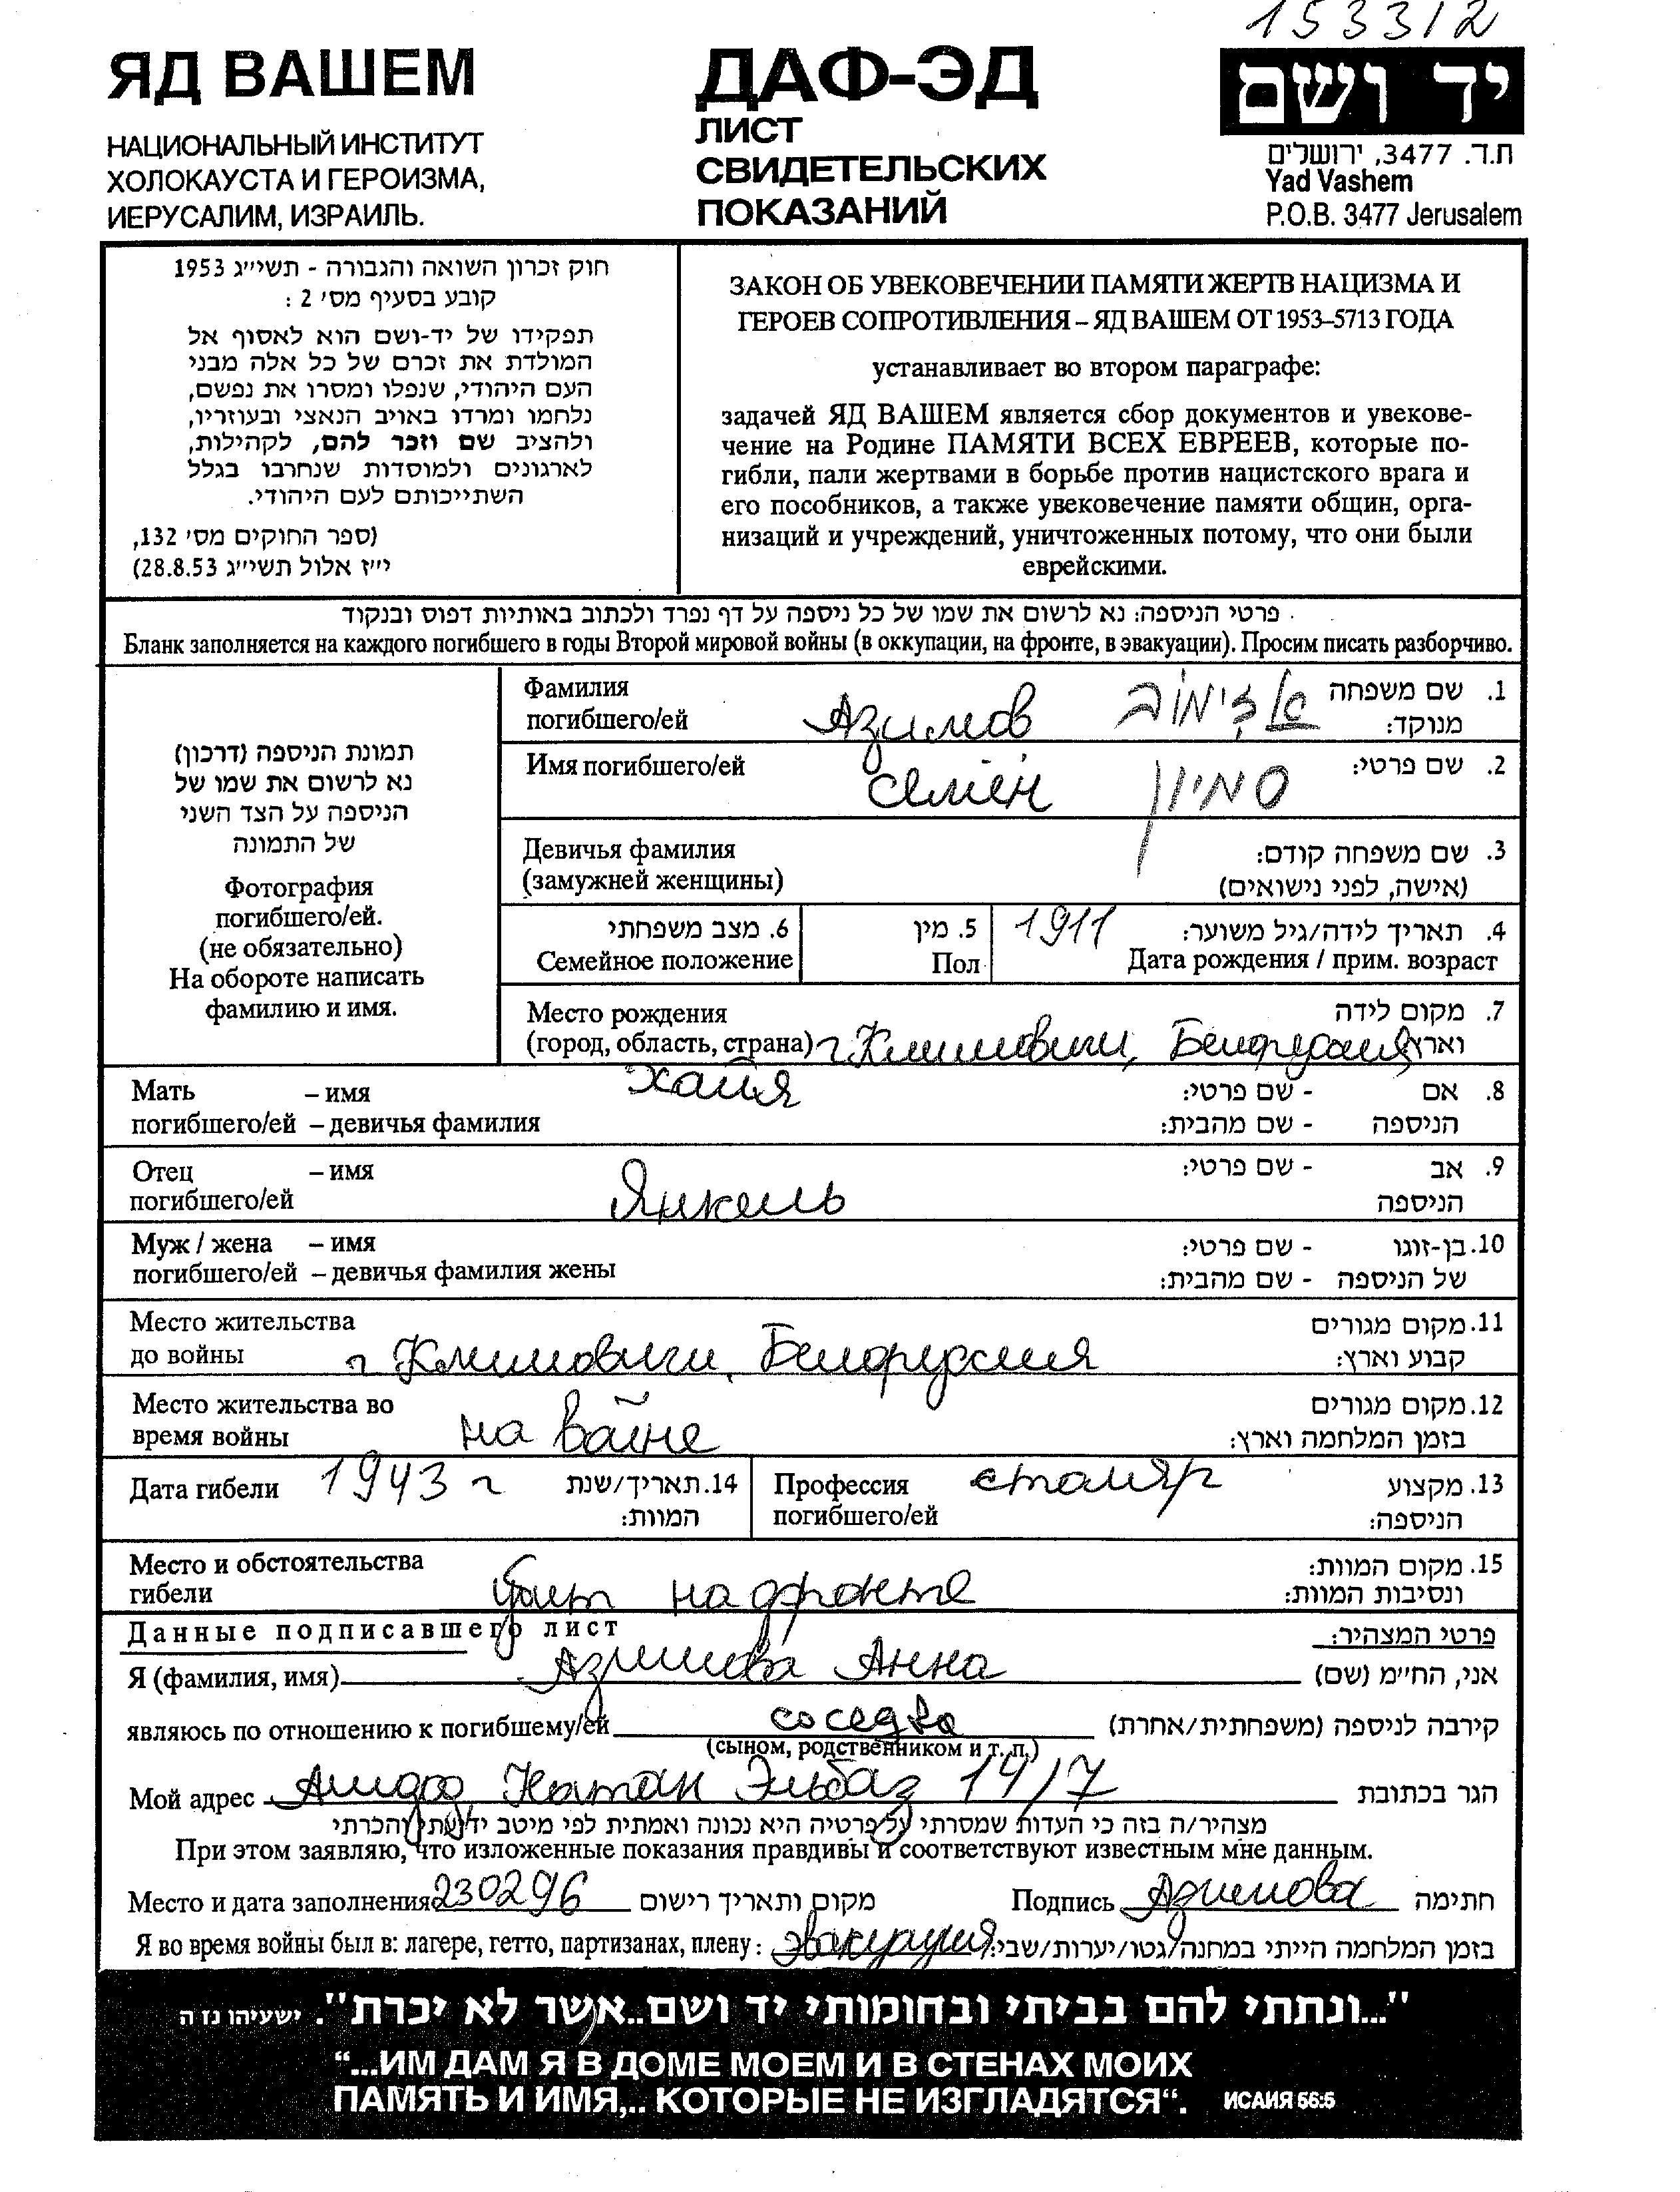 153312
ЯД ВАШЕМ
НАЦИОНАЛЬНЫЙ ИНСТИТУТ
ХОЛОКАУСТА И ГЕРОИЗМА,
ИЕРУСАЛИМ, ИЗРАИЛЬ.
ДАФ-ЭД
ЛИСТ
СВИДЕТЕЛЬСКИХ
ПОКАЗАНИЙ
יד ושם
ת.ד. 3477, ירושלים
Yad Vashem
P.O.B. 3477 Jerusalem
חוק זכרון השואה והגבורה - תשי״ג 1953
קובע בסעיף מס׳ 2 :
תפקידו של יד-ושם הוא לאסוף אל
המולדת את זכרם של כל אלה מבני
העם היהודי, שנפלו ומסרו את נפשם,
נלחמו ומרדו באויב הנאצי ובעוזריו,
ולהציב שם וזכר להם, לקהילות,
לארגונים ולמוסדות שנחרבו בגלל
השתייכותם לעם היהודי.
(ספר החוקים מס׳ 132,
י״ז אלול תשי״ג 28.8.53)
ЗАКОН ОБ УВЕКОВЕЧЕНИИ ПАМЯТИ ЖЕРТВ НАЦИЗМА И
ГЕРОЕВ СОПРОТИВЛЕНИЯ – ЯД ВАШЕМ ОТ 1953–5713 ГОДА
устанавливает во втором параграфе:
задачей ЯД ВАШЕМ является сбор документов и увекове-
чение на Родине ПАМЯТИ ВСЕХ ЕВРЕЕВ, которые по-
гибли, пали жертвами в борьбе против нацистского врага и
его пособников, а также увековечение памяти общин, орга-
низаций и учреждений, уничтоженных потому, что они были
еврейскими.
פרטי הניספה: נא לרשום את שמו של כל ניספה על דף נפרד ולכתוב באותיות דפוס ובנקוד
Бланк заполняется на каждого погибшего в годы Второй мировой войны (в оккупации, на фронте, в эвакуации). Просим писать разборчиво.
תמונת הניספה (דרכון)
נא לרשום את שמו של
הניספה על הצד השני
של התמונה
Фотография
погибшего/ей.
(не обязательно)
На обороте написать
фамилию и имя.
Фамилия 1. שם משפחה
погибшего/ей Азимов אזימוב מנוקד:
Имя погибшего/ей Семён סמיון 2. שם פרטי:
Девичья фамилия 3. שם משפחה קודם:
(замужней женщины) (אישה, לפני נישואים)
6. מצב משפחתי 5. מין 1911 4. תאריך לידה/גיל משוער:
Семейное положение Пол Дата рождения / прим. возраст
Место рождения 7. מקום לידה
(город, область, страна) г. Климовичи, Белоруссия וארץ
Мать – имя Хайя 8. אם - שם פרטי:
погибшего/ей – девичья фамилия הניספה - שם מהבית:
Отец – имя 9. אב - שם פרטי:
погибшего/ей Янкель הניספה
Муж / жена – имя 10. בן-זוגו - שם פרטי:
погибшего/ей – девичья фамилия жены של הניספה - שם מהבית:
Место жительства 11. מקום מגורים
до войны г Климовичи, Белоруссия קבוע וארץ:
Место жительства во 12. מקום מגורים
время войны на вайне בזמן המלחמה וארץ:
Дата гибели 1943 г 14. תאריך/שנת Профессия столяр 13. מקצוע
המוות: погибшего/ей הניספה:
Место и обстоятельства 15. מקום המוות:
гибели убит на фронте ונסיבות המוות:
Данные подписавшего лист פרטי המצהיר:
Я (фамилия, имя) Азимова Анна אני, הח״מ (שם)
являюсь по отношению к погибшему/ей соседка קירבה לניספה (משפחתית/אחרת)
(сыном, родственником и т. п.)
Мой адрес Ашдод Натан Эльбаз 14/7 הגר בכתובת
מצהיר/ה בזה כי העדות שמסרתי על פרטיה היא נכונה ואמתית לפי מיטב ידיעתי והכרתי
При этом заявляю, что изложенные показания правдивы и соответствуют известным мне данным.
Место и дата заполнения 230296 מקום ותאריך רישום Подпись Азимова חתימה
Я во время войны был в: лагере, гетто, партизанах, плену: эвакуация בזמן המלחמה הייתי במחנה/גטו/יערות/שבי:
"...ונתתי להם בביתי ובחומותי יד ושם..אשר לא יכרת". ישעיהו נו ה
“...ИМ ДАМ Я В ДОМЕ МОЕМ И В СТЕНАХ МОИХ
ПАМЯТЬ И ИМЯ,.. КОТОРЫЕ НЕ ИЗГЛАДЯТСЯ“. ИСАИЯ 56:5